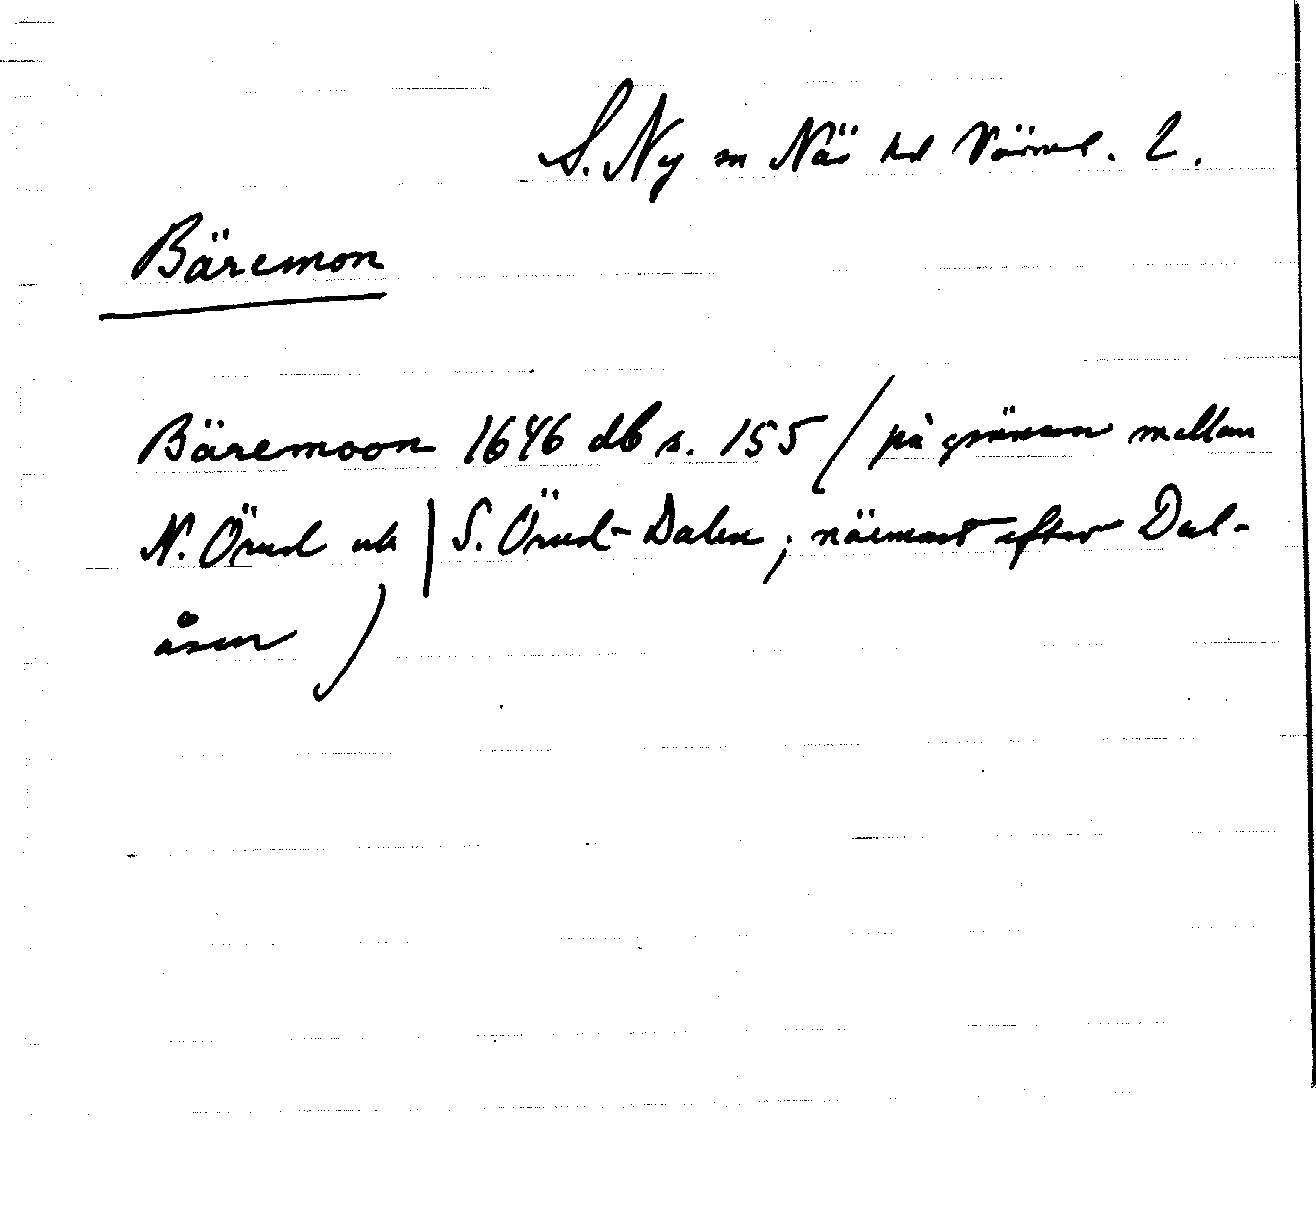 S. Ny sn Näs hd Värml. l.
Bäremon
Bäremoon 1646 db s. 155 / på gränsen mellan
N. Örud och | S. Örud-Dalen, närmast efter Dal-
åsen )